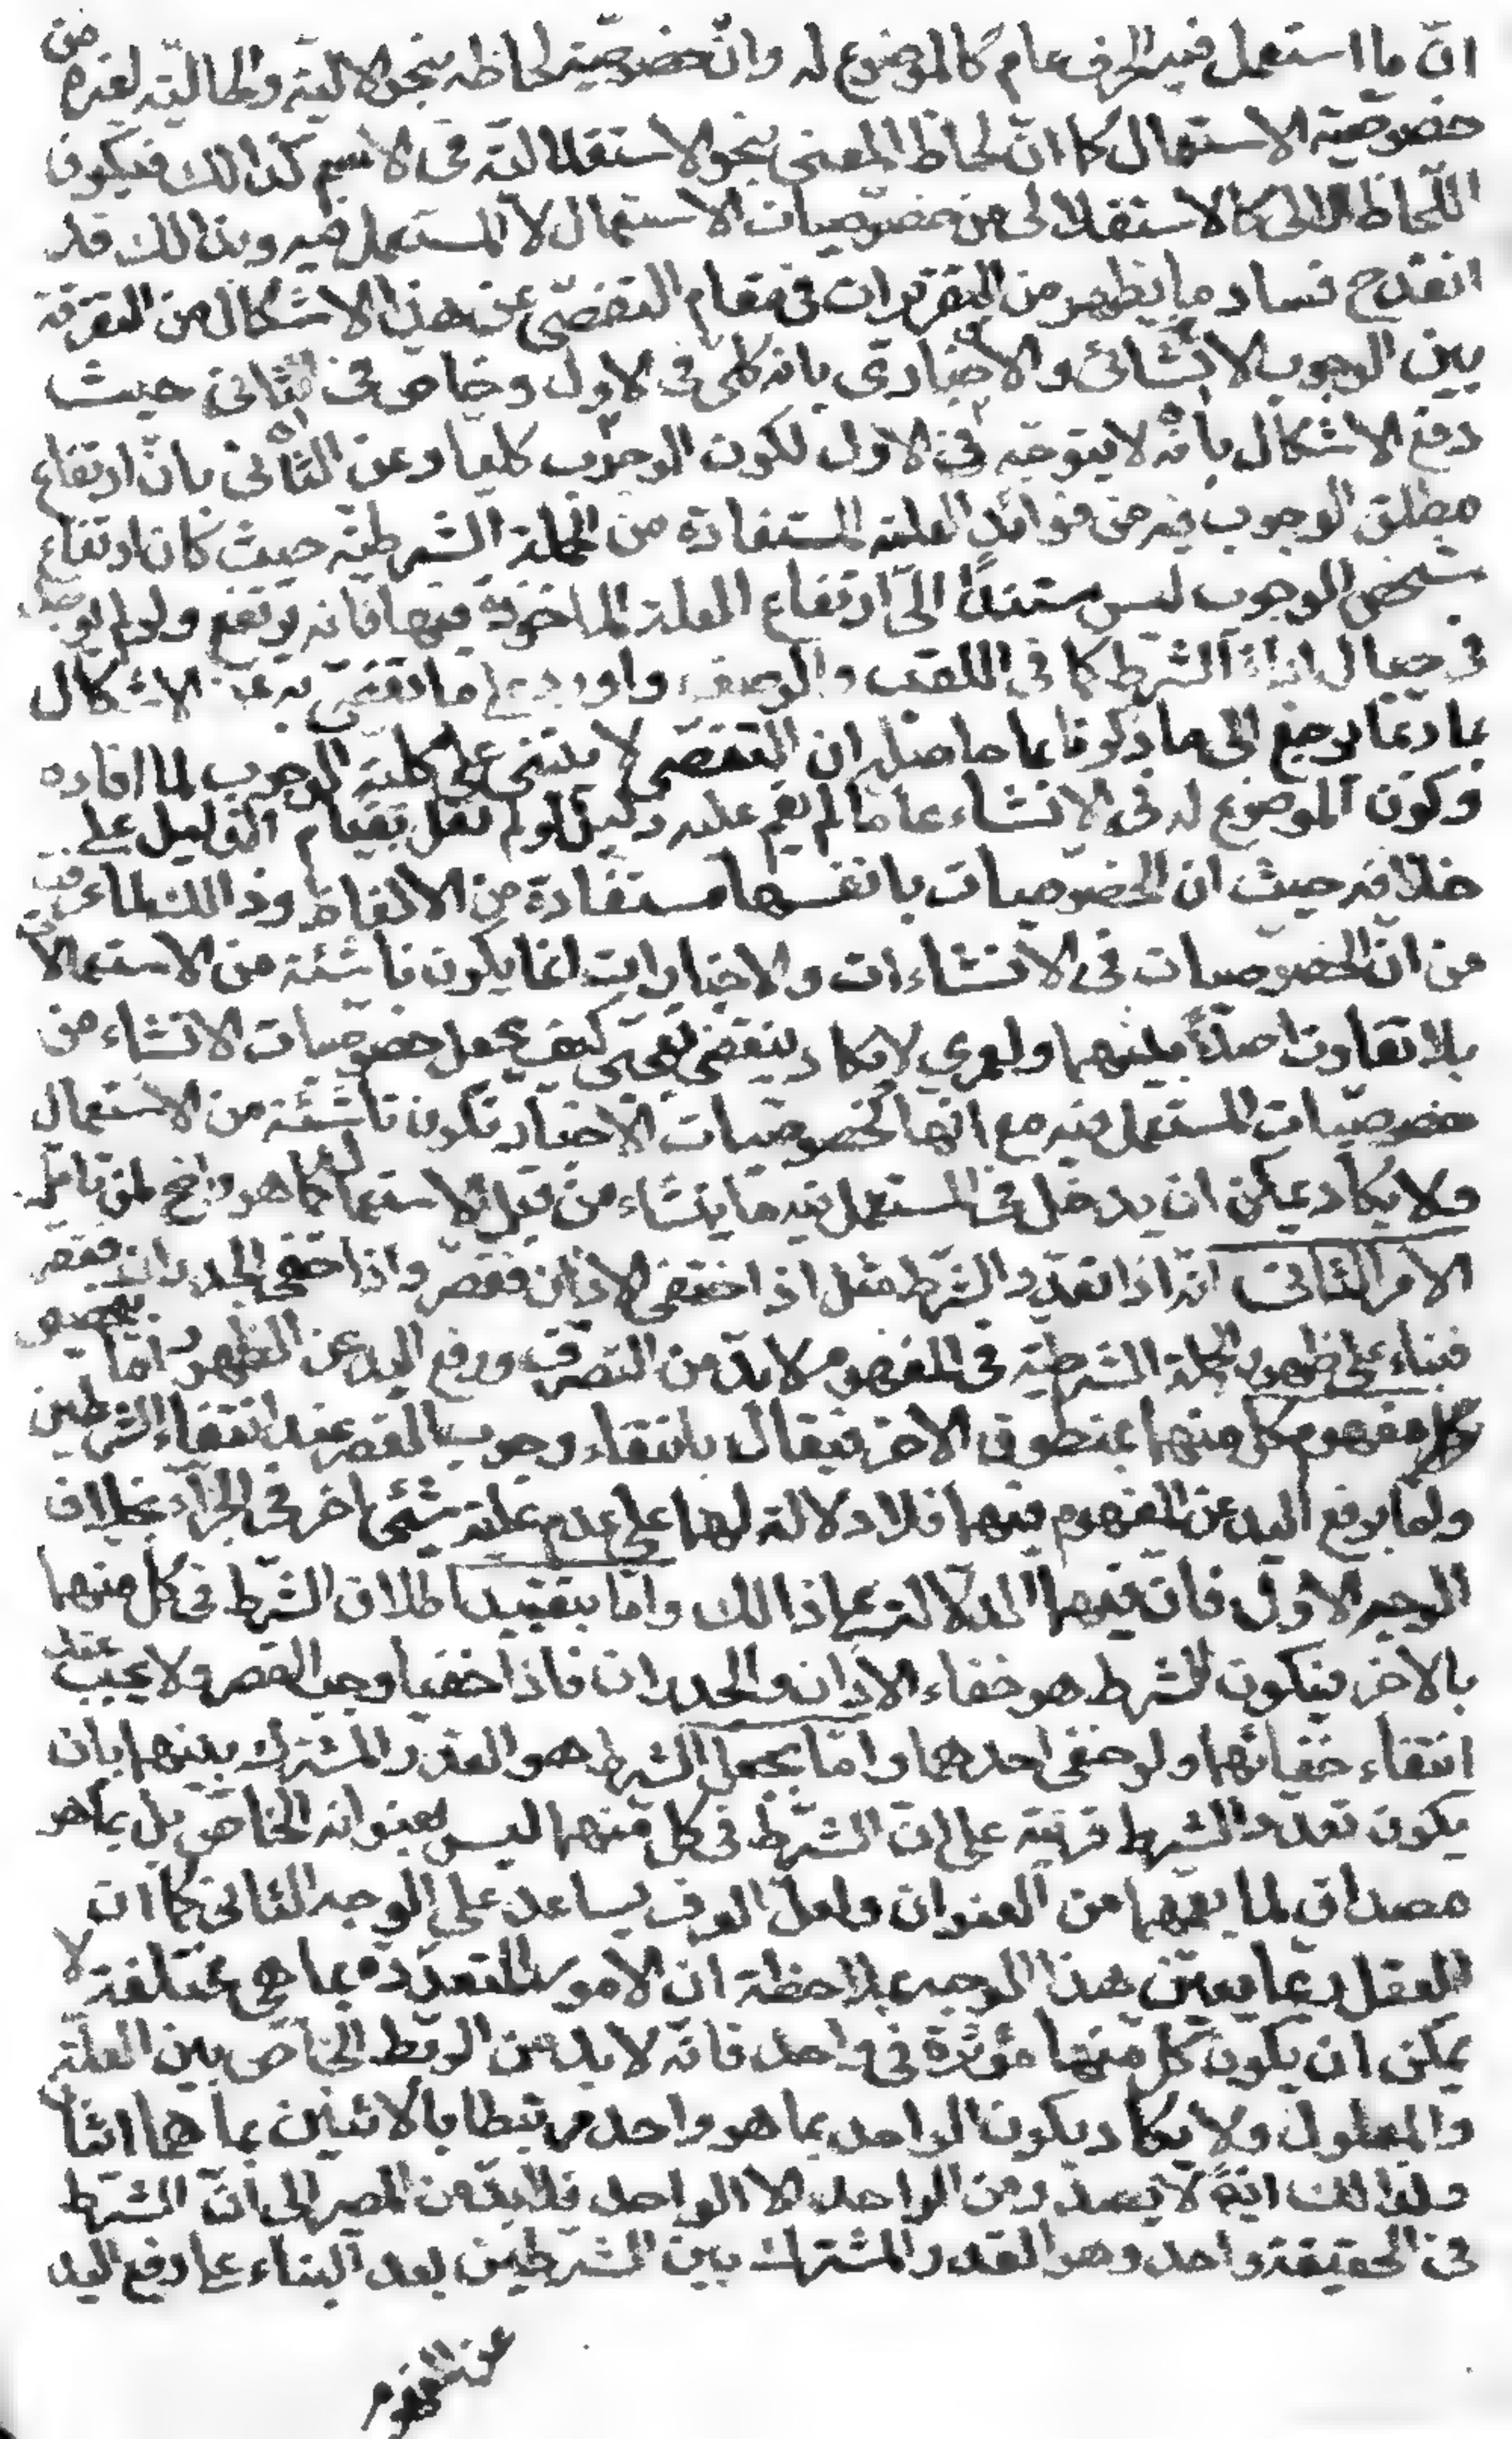 انّ ما استعمل فيه الحرف عام كالموضوع له وانّ خصوصيّة لحاظه بنحو الاليّة والحاليّة لغيره من
خصوصيّة الاستعمال كما انّ لحاظ المعنى بنحو الاستقلاليّة فى الاسم كذالك فيكون
اللّحاظ الالى كالاستقلالى من خصوصيات الاستعمال لا المستعمل فيه وبذالك قد
انقدح فساد ما يظهر من التقريرات فى مقام التفصّى عن هذا الاشكال من التفرقة
بين الوجوب الانشائى والاخبارى بانه كلى فى الاول وخاص فى الثانى حيث
دفع الاشكال بأنّه لا يتوجّه فى الاول لكون الوجوب كليا وعن الثّانى بانّ ارتفاع
مطلق الوجوب فيه من فوائد العليّة المستفادة من الجملة الشرطيّة حيث كان ارتفاع
شخص الوجوب ليس مستندًا الى ارتفاع العلة الماخوذة فيها فانه يرتفع ولو لم يوجد
فى حيال اداة الشرط كما فى اللقب والوصف واورد على ما تفصّى به عن الاشكال
بما ربّما يرجع الى ما ذكرنا بما حاصله ان التفصّى لا يبتنى على كليّة الوجوب لما افاده
وكون الموضوع له فى الانشاء عاما لم يقم عليه دليل لو لم نقل بقيام الدّليل على
خلافه حيث ان الخصوصيات بانفسها مستفادة من الالفاظ وذالك لما عرفت
من انّ الخصوصيات فى الانشاءات والاخبارات انما يكون ناشئة من الاستعمالات
بلا تفاوت اصلاً بينهما ولعمرى لا يكاد ينقضى تعجّبى كيف يجعل خصوصيات الانشاء من
خصوصيّات المستعمل فيه مع انّها كخصوصيات الاخبار تكون ناشئة من الاستعمال
ولا يكاد يمكن ان يدخل فى المستعمل فيه ما ينشاء من قبل الاستعمال كما هو واضح لمن تامّل
الامر الثّانى انه اذا تعدّد الشّرط مثل اذا اختفى الاذان فقصر واذا خفى الجدران فقصر
فبناء على ظهور الجملة الشرطيّة فى المفهوم لا بدّ من التصرّف ورفع اليد عن الظهور امّا بتخصيص
مفهوم كل منهما بمنطوق الاخر فيقال بانتفاء وجوب القصر عند انتفاء الشرطين
وامّا برفع اليد عن المفهوم فيهما فلا دلالة لهما على عدم علية شئى اخر فى الجزآء بخلاف
الوجه الاوّل فان فيهما الدلالة على ذالك وامّا بتقييد اطلاق الشّرط فى كل منهما
بالاخر فيكون الشرط هو خفاء الاذان والجدران فاذا خفيا وجب القصر ولا يجب عند
انتفاء خفائهما ولو خفى احدهما وامّا بجعل الشرط هو القدر المشترك بينهما بان
يكون تعدد الشرط قرينة على ان الشّرط فى كل منهما ليس بعنوانه الخاصّ بل بما هو
مصداق لما يعمّهما من العنوان ولعلّ العرف يساعد على الوجه الثانى كما ان
العقل ربما يعين هذا الوجه بملاحظة ان الامور المتعددة بما هى مختلفة لا
يمكن ان يكون كل منها مؤثّرة فى واحد فانّه لا بد من الربط الخاصّ بين العلّة
والمعلول ولا يكاد يكون الواحد بما هو واحد مرتبطا بالاثنين بما هما اثنان
ولذالك ايضًا لا يصدر من الواحد الا الواحد فلابدّ من المصير الى انّ الشّرط
فى الحقيقة واحد وهو القدر المشترك بين الشّرطين بعد البناء على رفع اليد
عن المفهوم